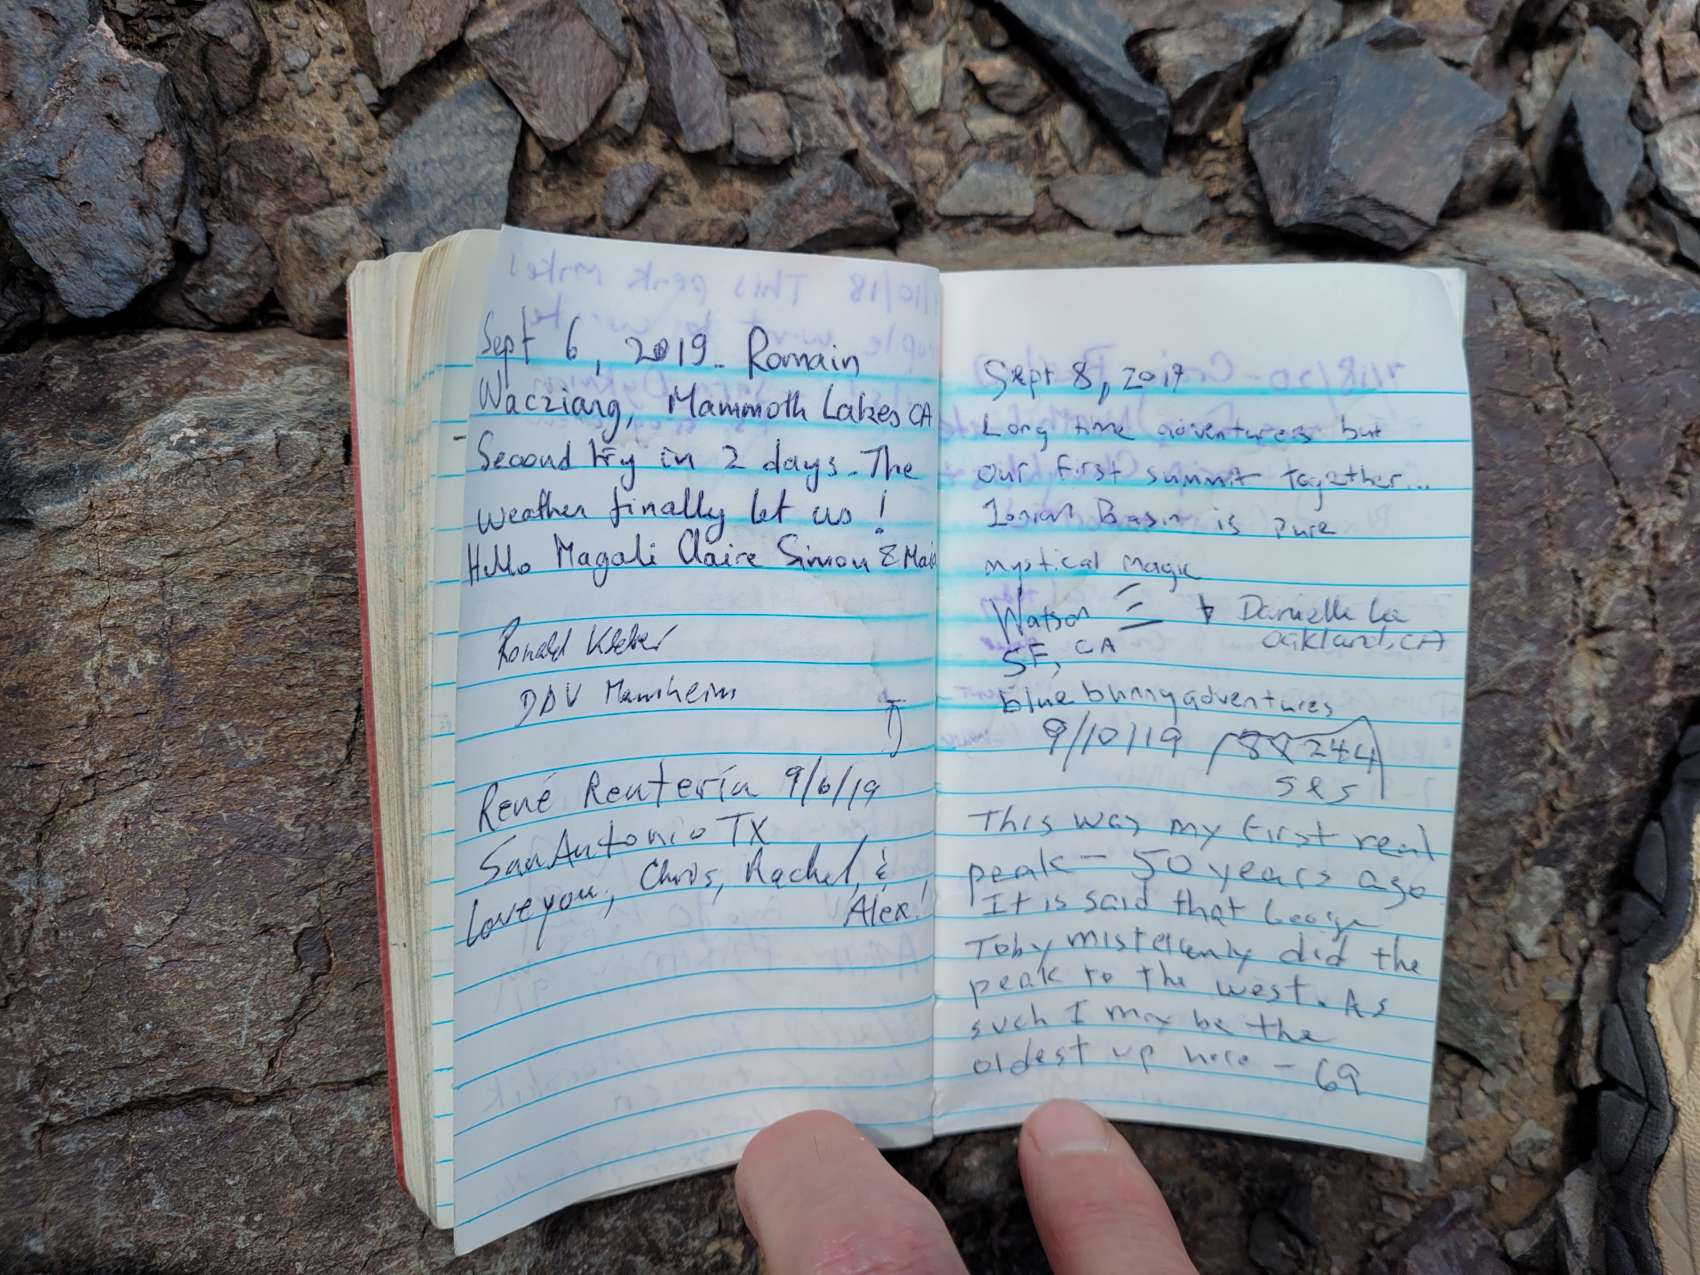 Sept 6, 2019. Romain
Wacziarg, Mammoth Lakes CA
- Second try in 2 days. The
weather finally let us!
Hello Magali Claire Simon &
Ronald
DAV Mannheim
René Renteria 9/6/19
San Antonio TX
Love you, Chris, Rachel, &
Alex!
Sept 8, 2019
Long time adventurers but
our first summit together...
Ionian Basin is pure
mystical magic
Watson & Danielle
SF, CA Oakland, CA
blue bunny adventures
9/10/19
This was my first real
peak - 50 years ago
It is said that George
Toby mistekenly did the
peak to the west. As
such I may be the
oldest up here - 69